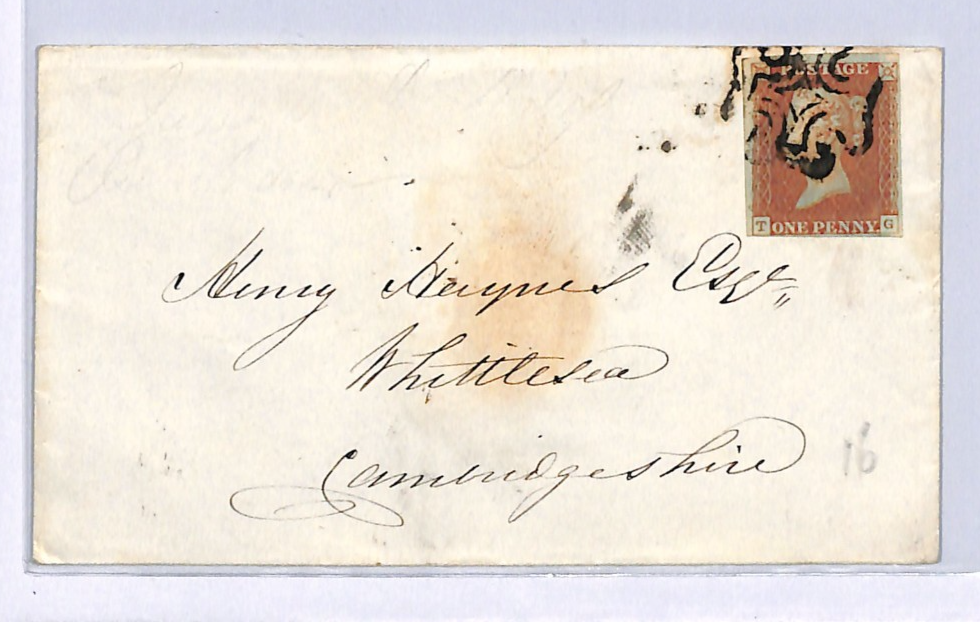 POSTAGE
T ONE PENNY G
Henry Haynes Esqr
Whittlesea
Cambridgeshire
16